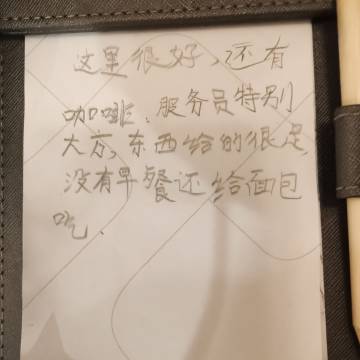 这里很好，还有
咖啡、服务员特别
大方，东西给的很足，
没有早餐还给面包
吃、